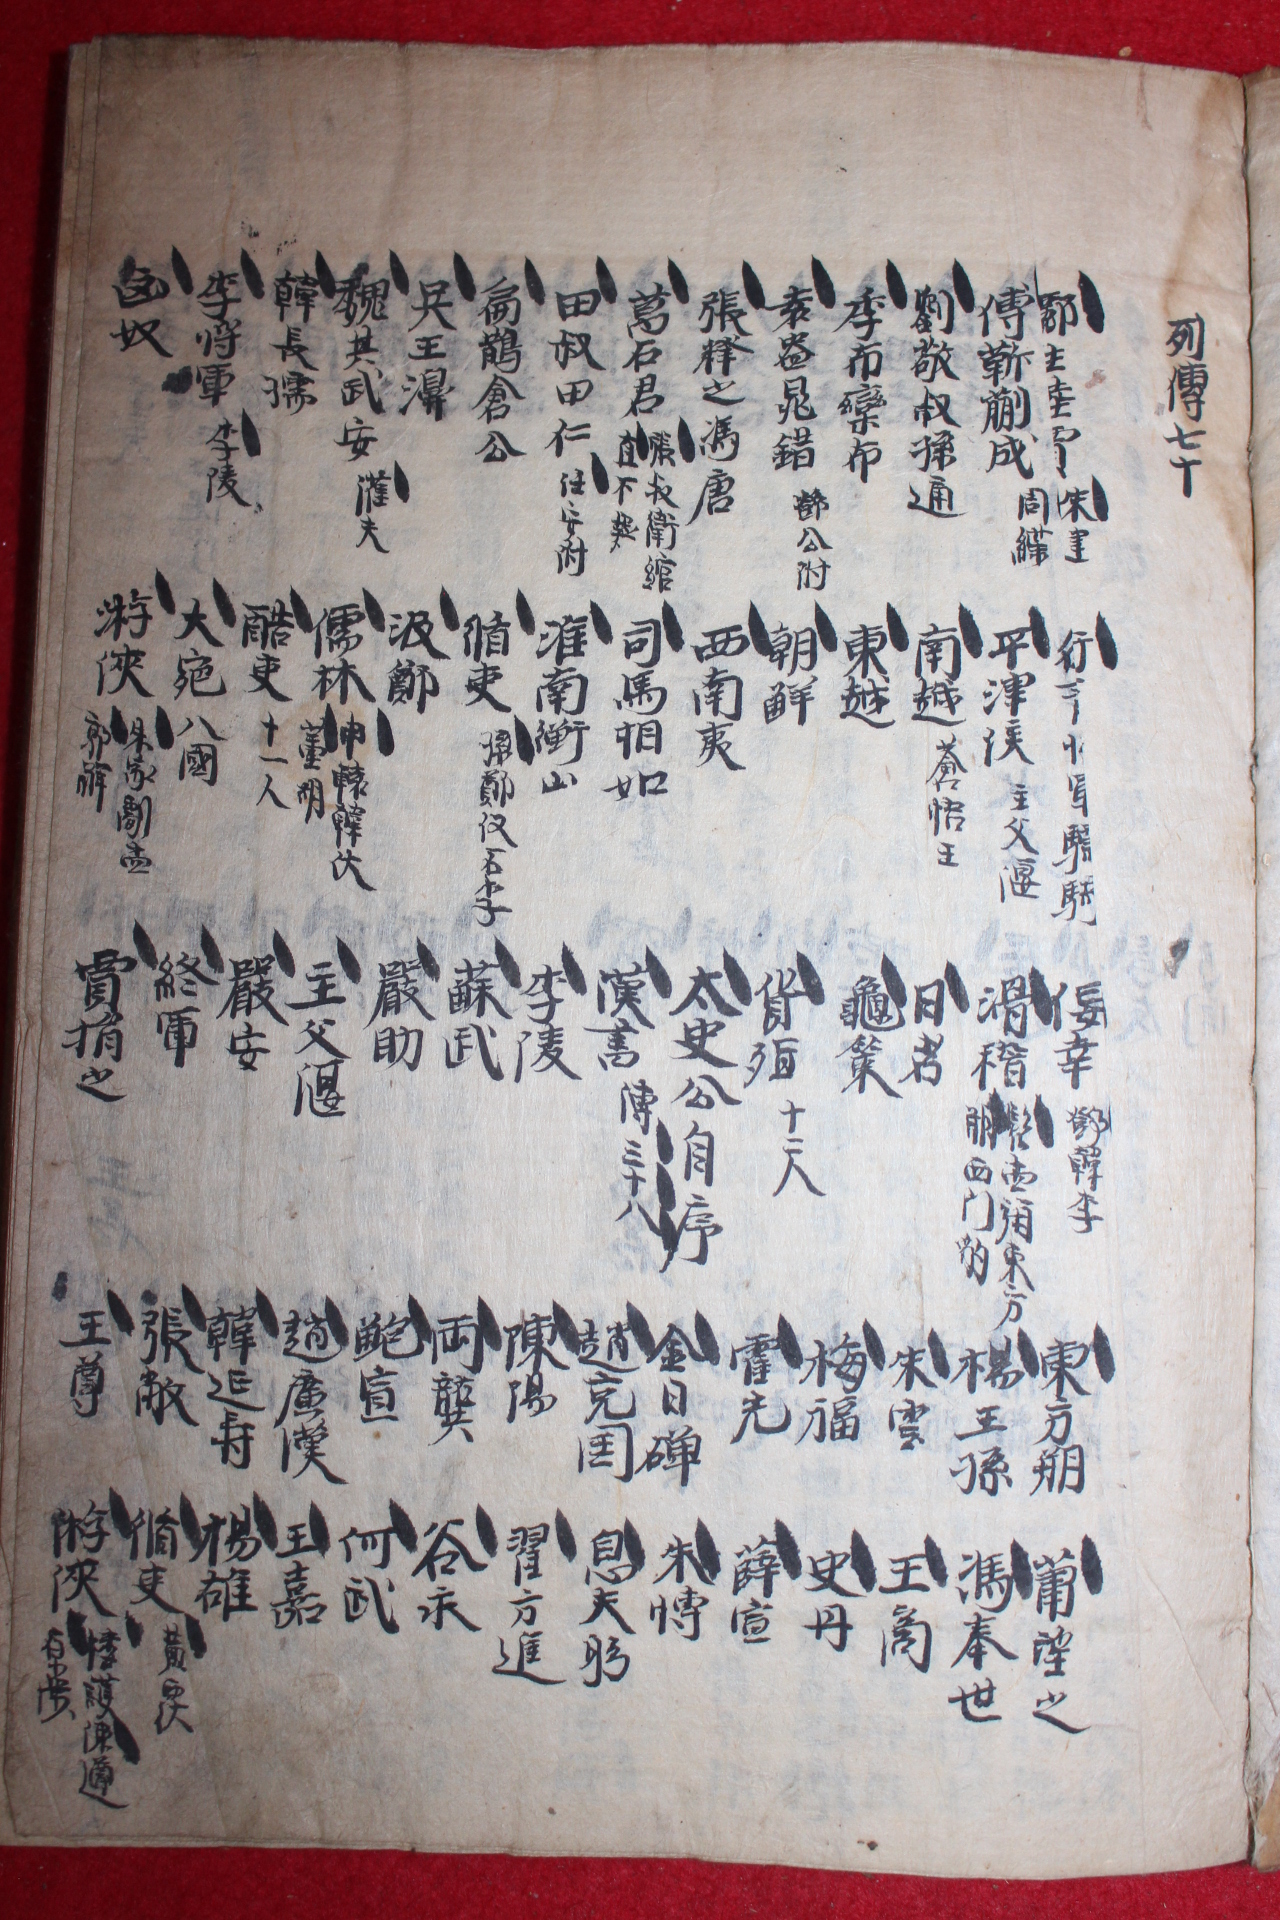 列傳七十
酈生陸賈 朱建
傅靳蒯成 周緤
劉敬叔孫通
季布欒布
袁盎晁錯 鄧公附
張釋之馮唐
萬石君 張叔衛綰 直不疑
田叔田仁 任安附
扁鵲倉公
吳王濞
魏其武安 灌夫
韓長孺
李將軍 李陵
匈奴
衛將軍驃騎
平津侯 主父偃
南越 蒼梧王
東越
朝鮮
西南夷
司馬相如
淮南衡山
循吏 孫鄭仪石李
汲鄭
儒林 申轅韓伏 董胡
酷吏 十一人
大宛 八國
游俠 朱家劇孟 郭解
佞幸 鄧韓李
滑稽 髡孟旃東方朔西門豹
日者
龜策
貨殖 十二人
太史公自序
漢書 傳三十八
李陵
蘇武
嚴助
主父偃
嚴安
終軍
賈捐之
東方朔
楊王孫
朱雲
梅福
霍光
金日磾
趙充国
陳湯
両龔
鮑宣
趙廣漢
韓延寿
張敞
王尊
蕭望之
馮奉世
王商
史丹
薛宣
朱博
息夫躬
翟方進
谷永
何武
王嘉
楊雄
循吏 黃霸
游俠 樓護陳遵 原涉